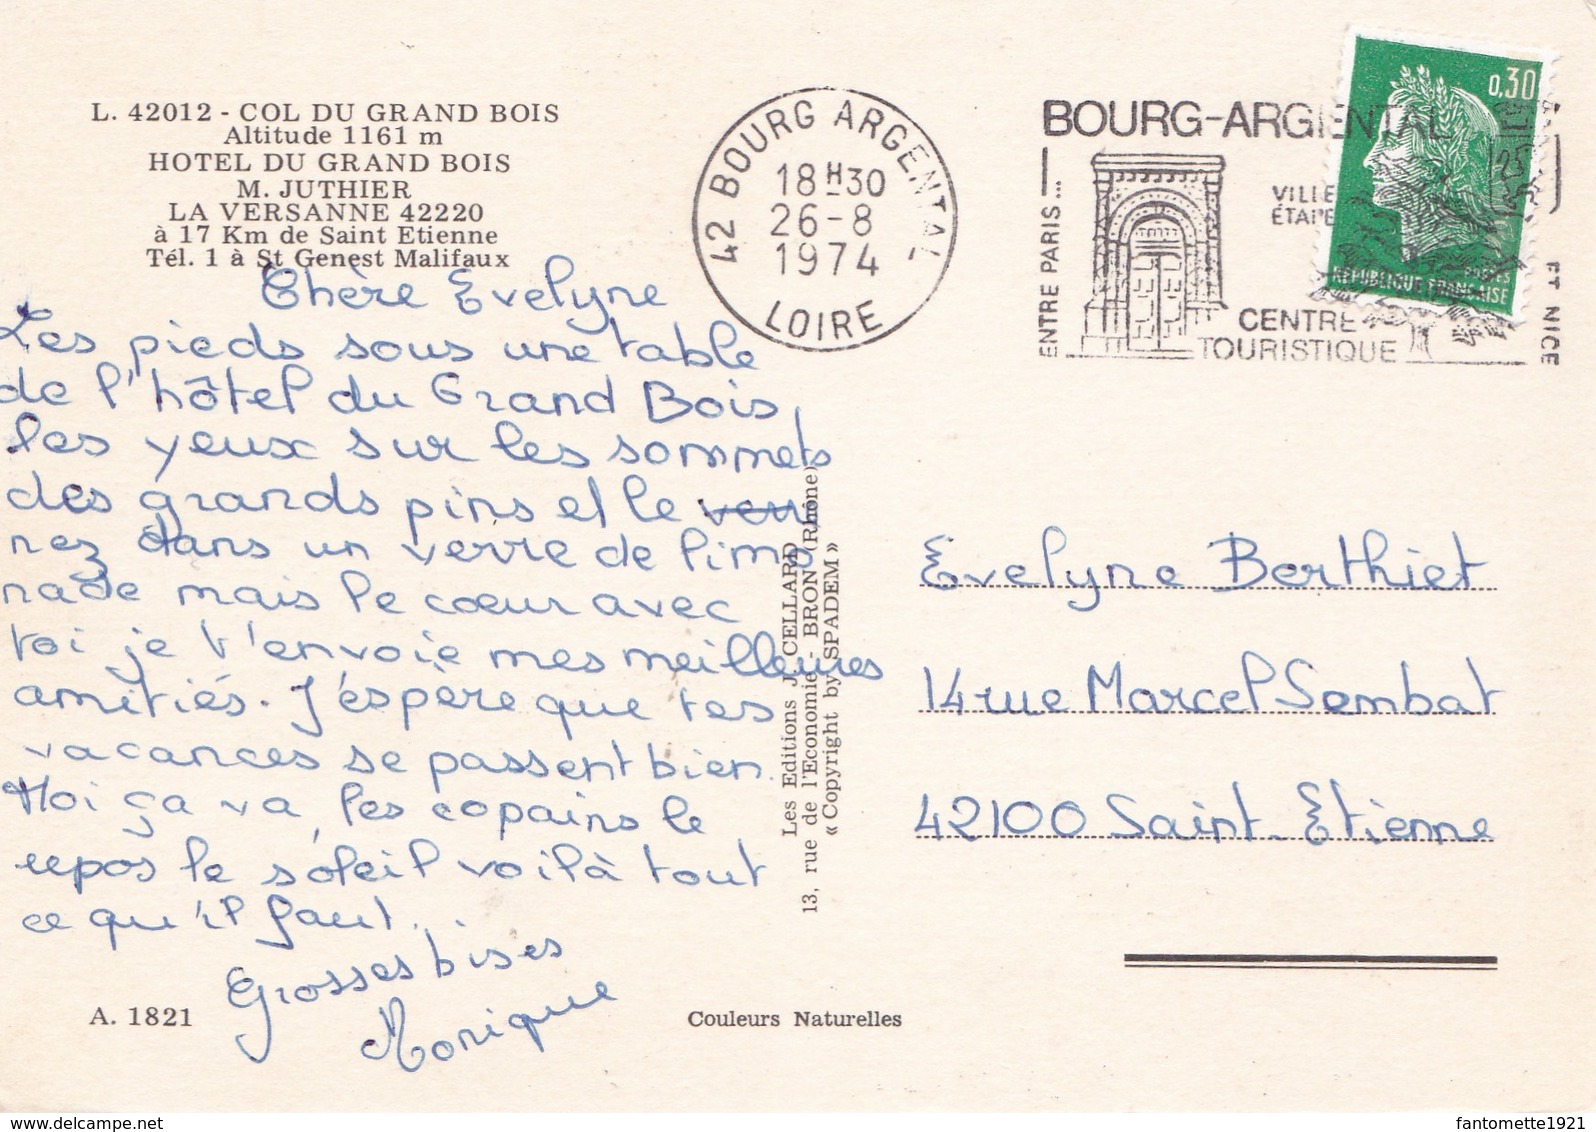 L. 42012 - COL DU GRAND BOIS
Altitude 1161 m
HOTEL DU GRAND BOIS
M. JUTHIER
LA VERSANNE 42220
à 17 Km de Saint Etienne
Tél. 1 à St Genest Malifaux
Chère Evelyne
Les pieds sous une table
de l'hôtel du Grand Bois,
les yeux sur les sommets
des grands pins et le
nez dans un verre de limo
nade mais le cœur avec
toi je t'envoie mes meilleures
amitiés. J'éspère que tes
vacances se passent bien.
Moi ça va, les copains le
repos le soleil voilà tout
ce qu'il faut.
Grosses bises
Monique
A. 1821
Couleurs Naturelles
Les Editions J. CELLARD
13, rue de l'Economie - BRON (Rhône)
« Copyright by SPADEM »
42 BOURG ARGENTAL
18 H 30
26-8
1974
LOIRE
BOURG-ARGENTAL
ENTRE PARIS...
VILLE
ÉTAPE
CENTRE
TOURISTIQUE
ET NICE
0,30
POSTES
REPUBLIQUE FRANÇAISE
Evelyne Berthiet
14 rue Marcel Sembat
42100 Saint-Etienne
www.delcampe.net
fantomette1921